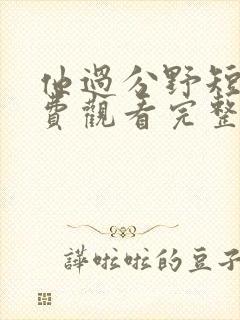 他過分野短
費觀看完整
譁啦啦的豆子